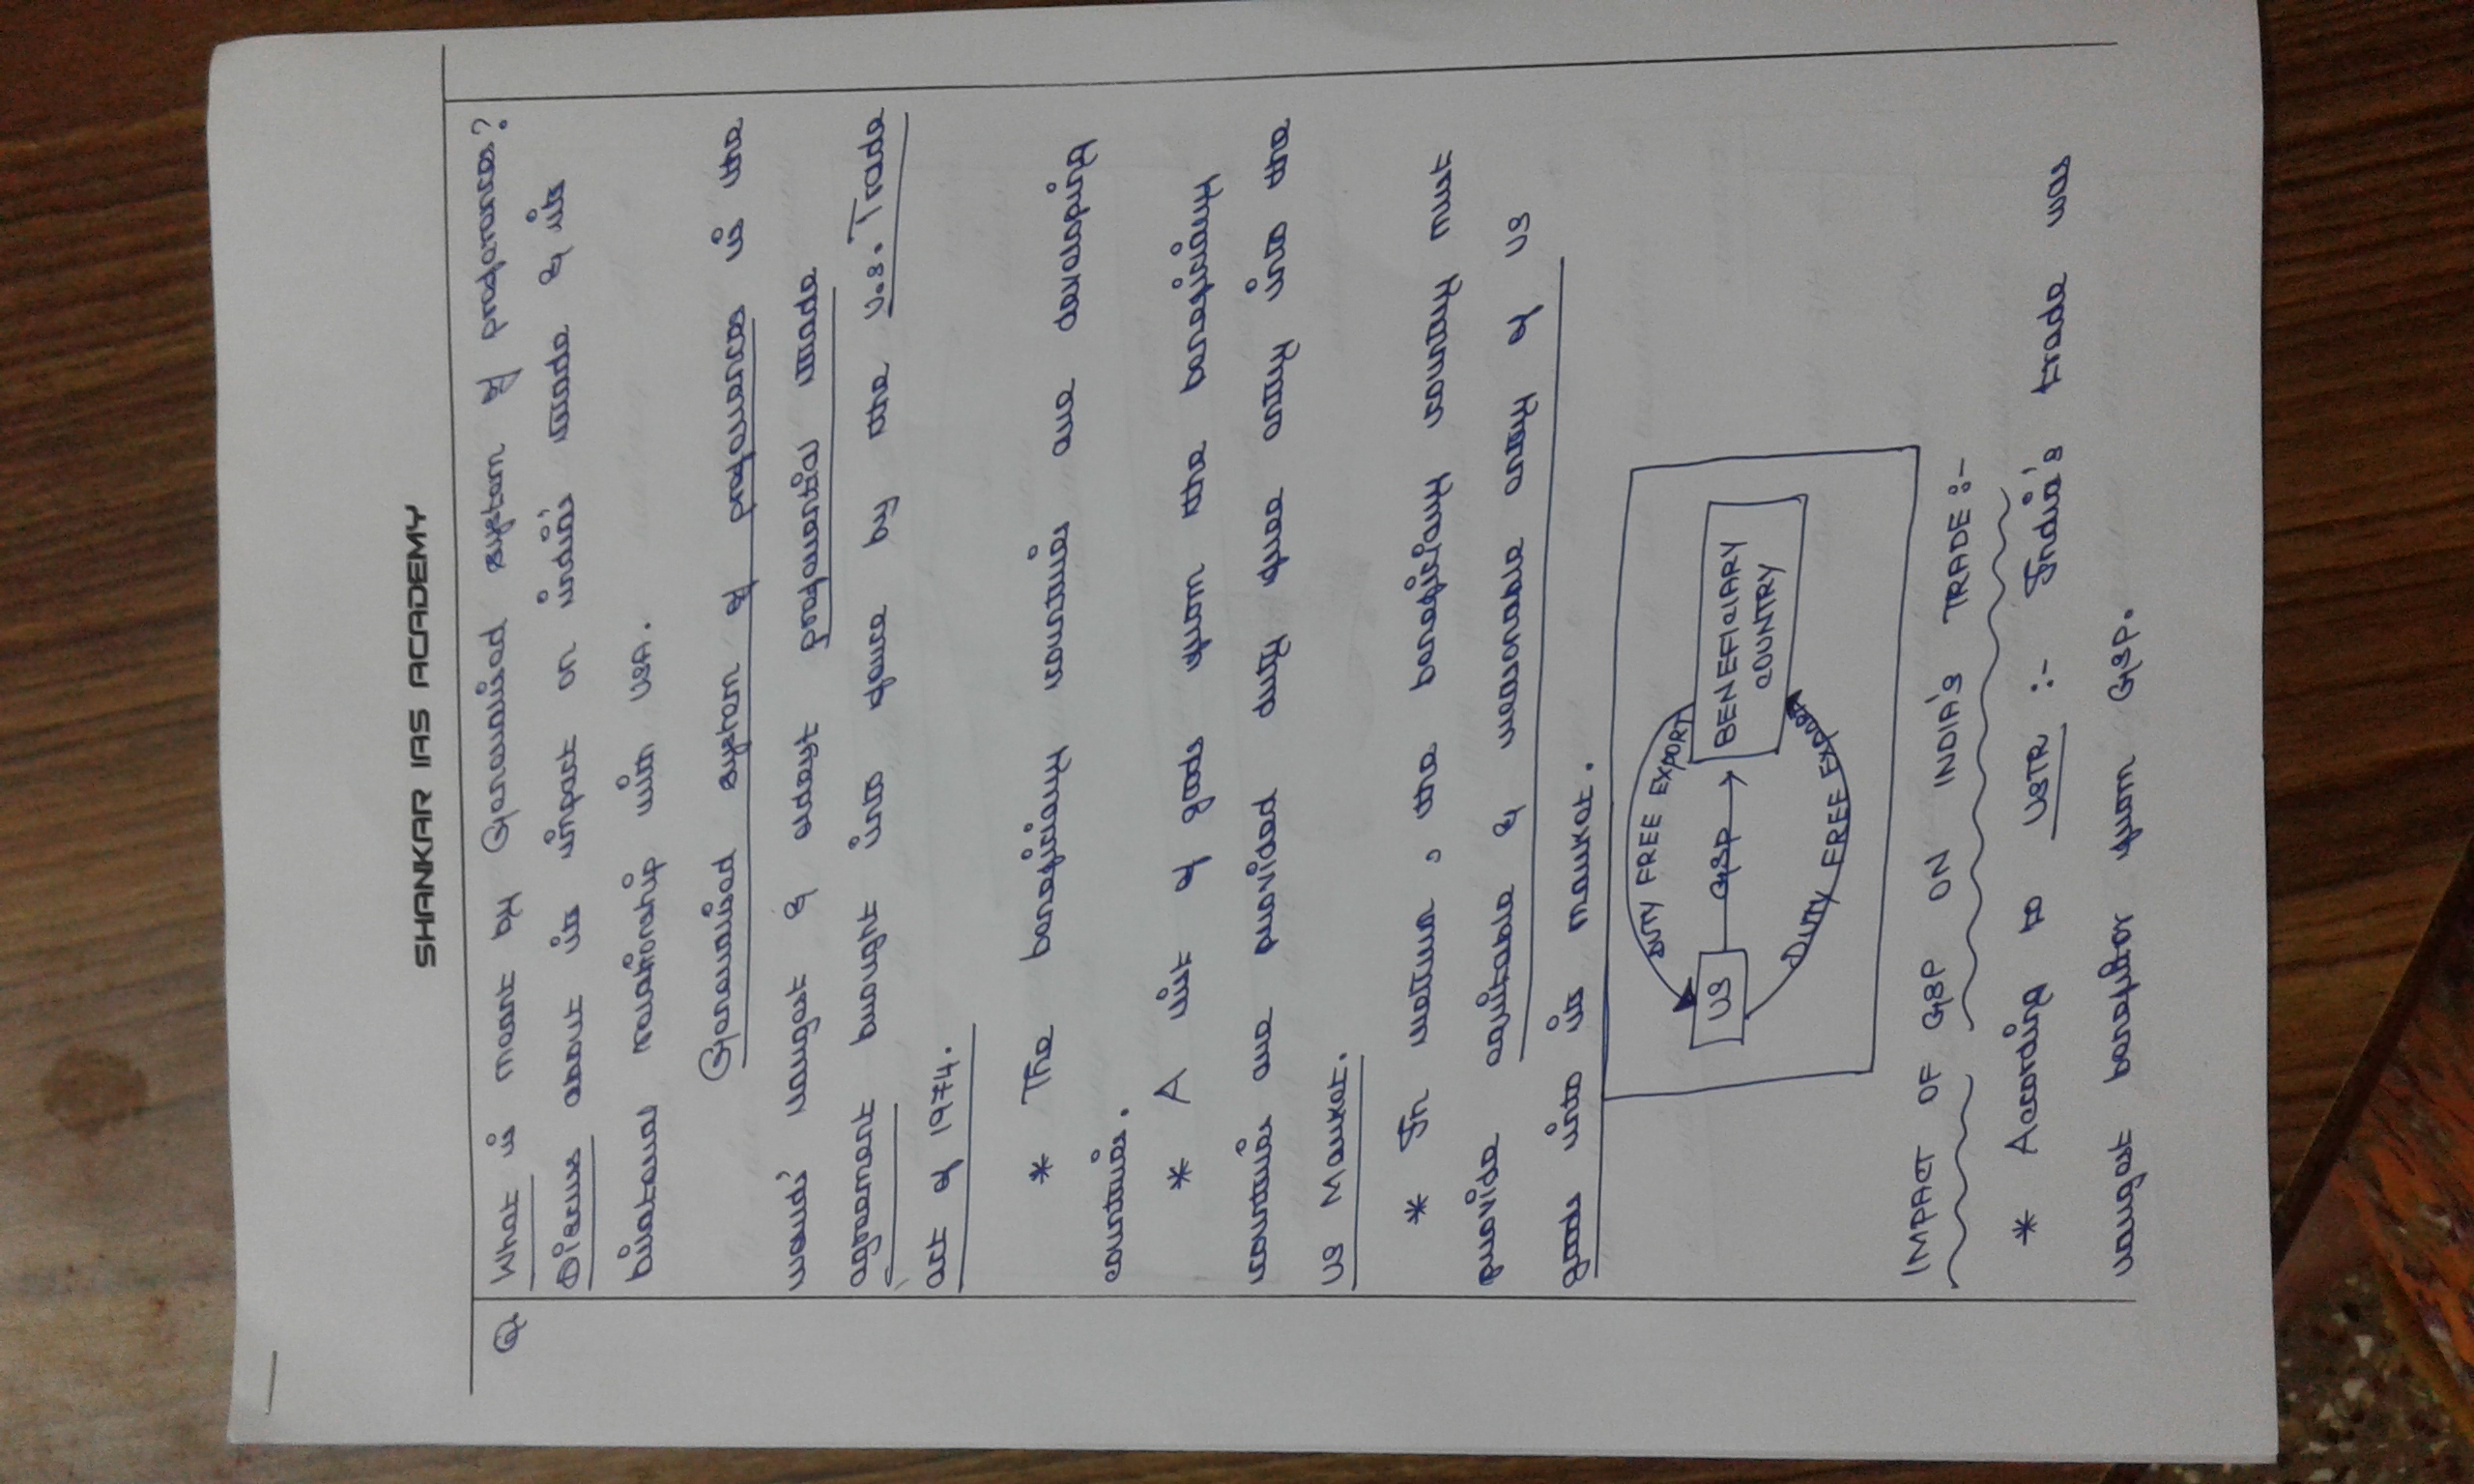 SHANKAR IAS ACADEMY
Q What is meant by Generalised system of preferences?
Discuss about its impact on india's trade & its
bilateral relationship with USA.
Generalised system of preferences is the
world's largest & oldest preferential trade
agreement brought into force by the U.S. Trade
act of 1974.
* The beneficiary countries are developing
countries.
* A list of goods from the beneficiary
countries are provided duty free entry into the
US Market.
* In return, the beneficiary country must
provide equitable & reasonable entry of US
goods into its market.
DUTY FREE EXPORT
US GSP BENEFICIARY
COUNTRY
DUTY FREE EXPORT
IMPACT OF GSP ON INDIA'S TRADE :-
* According to USTR :- India's trade was
largest benefitor from GSP.